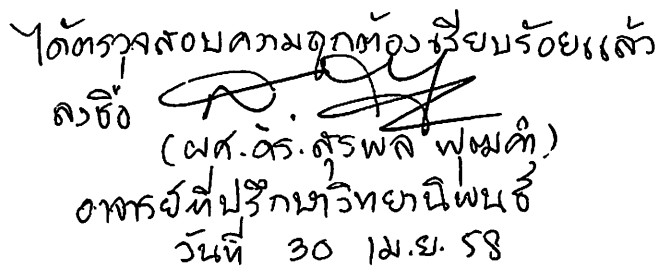 ได้ตรวจสอบความถูกต้องเรียบร้อยแล้ว
ลงชื่อ
(ผศ.ดร.สุรพล พุฒคำ)
อาจารย์ที่ปรึกษาวิทยานิพนธ์
วันที่ 30 เม.ย. 58